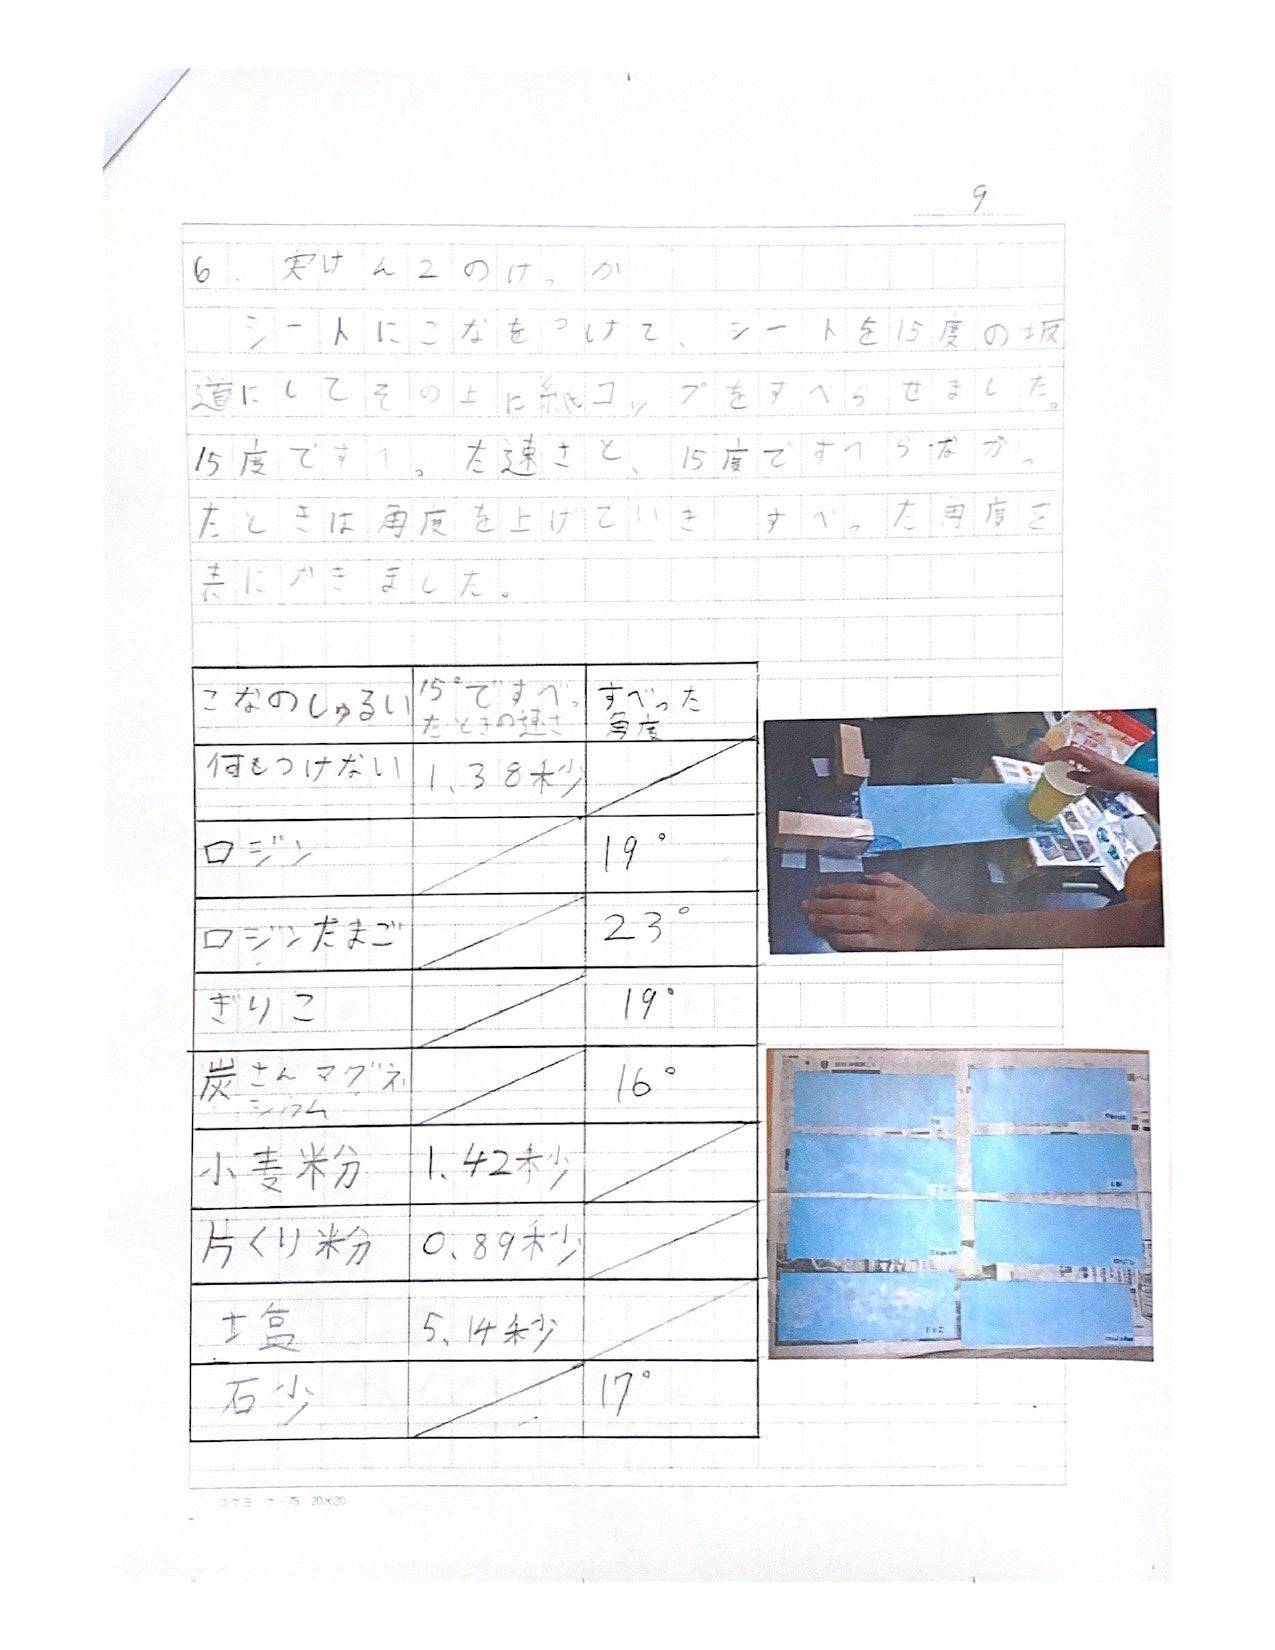 9
6. 実けん2のけっか
シートにこなをつけて、シートを15度の坂
道にしてその上に紙コップをすべらせました。
15度ですべった速さと、15度ですべらなかっ
たときは角度を上げていき すべった角度を
表にかきました。
こなのしゅるい 15°ですべったときの速さ すべった角度
何もつけない 1.38秒
ロジン 19°
ロジンたまご 23°
ぎりこ 19°
炭さんマグネシウム 16°
小麦粉 1.42秒
片くり粉 0.89秒
塩 5.14秒
砂 17°
コクヨ ケ-75 20×20